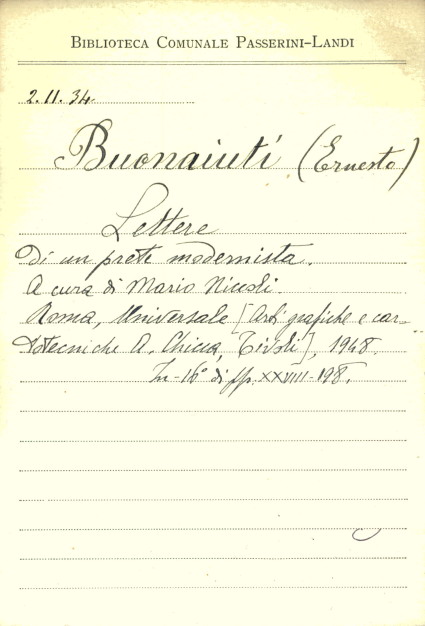 BIBLIOTECA COMUNALE PASSERINI-LANDI
2.11.34
Buonaiuti (Ernesto)
Lettere
di un prete modernista.
A cura di Mario Niccoli.
Roma, Universale [Arti grafiche e car-
totecniche A. Chicca, Tivoli], 1948.
In-16° di pp. XXVIII-198.